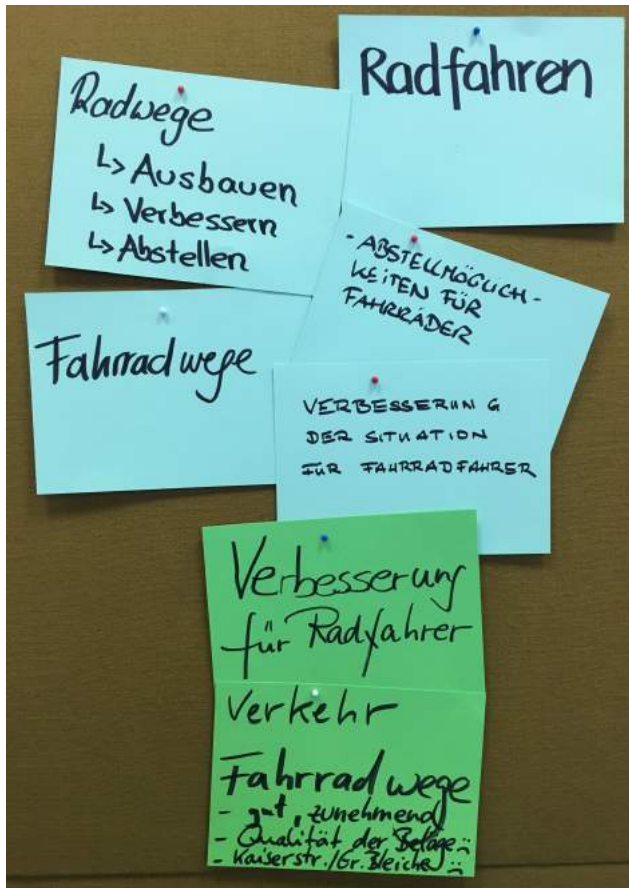 Radfahren
Radwege
↳ Ausbauen
↳ Verbessern
↳ Abstellen
- ABSTELLMÖGLICH-
KEITEN FÜR
FAHRRÄDER
Fahrradwege
VERBESSERUNG
DER SITUATION
FÜR FAHRRADFAHRER
Verbesserung
für Radfahrer
Verkehr
Fahrradwege
- gut, zunehmend
- Qualität der Beläge :(
- Kaiserstr./Gr. Bleiche :(